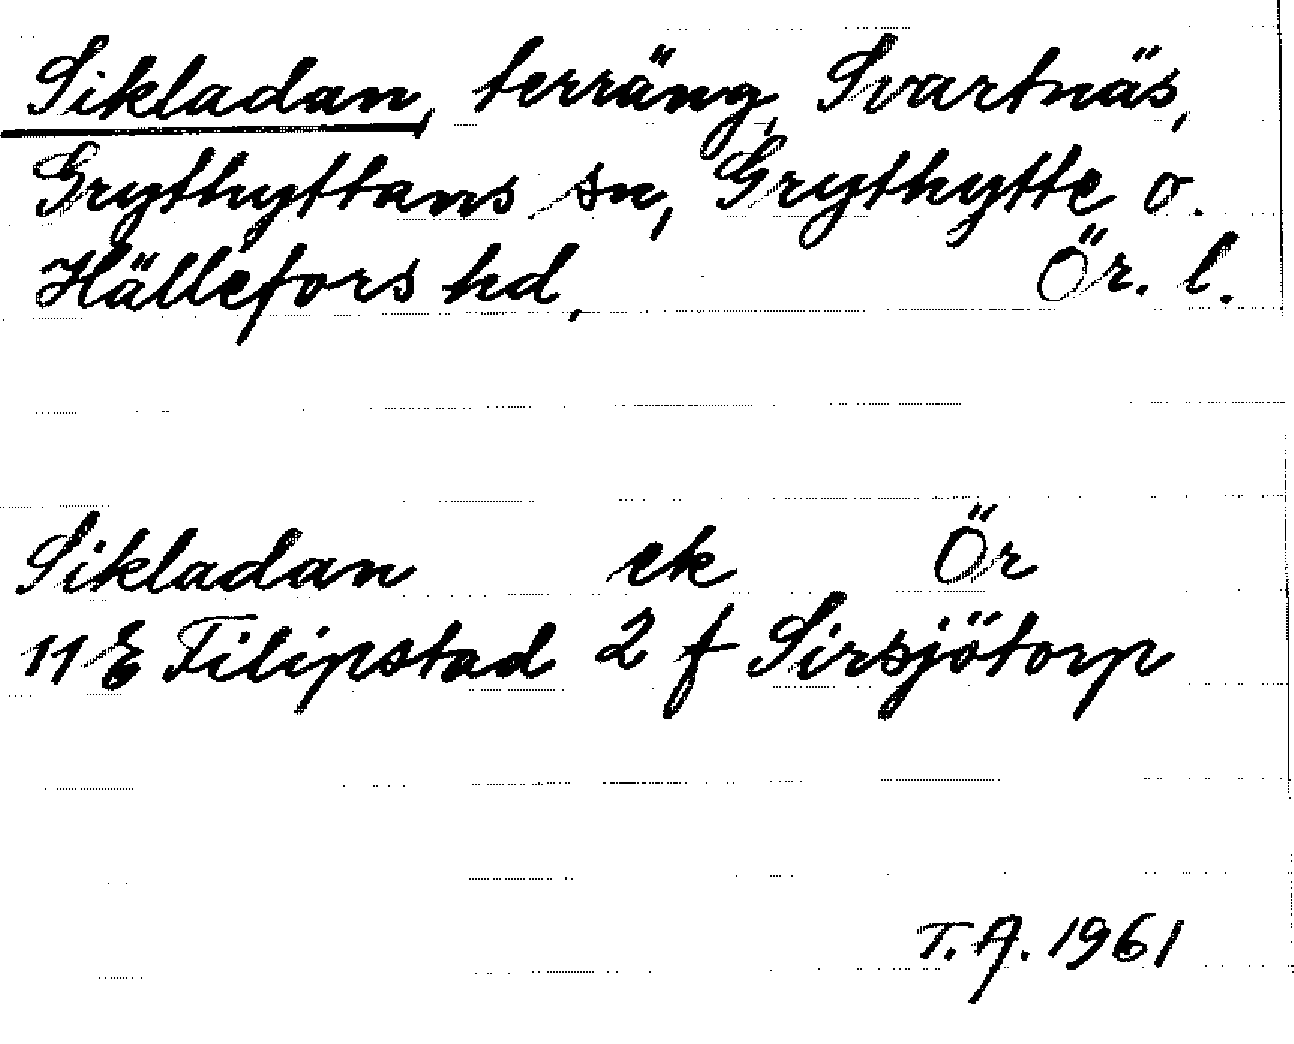 Sikladan, terräng, Svartnäs,
Grythyttans sn, Grythytte o.
Hällefors hd, Ör. l.
Sikladan ek Ör
11 E Filipstad 2 f Sirsjötorp
T.A. 1961